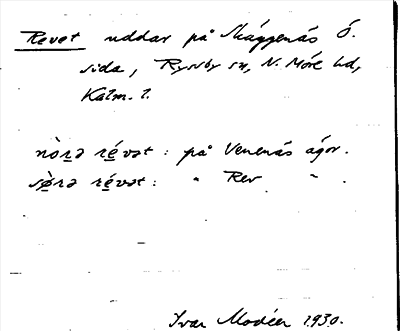 Revet uddar på Skäggenäs Ö.
sida, Ryssby sn, N. Möre hd,
Kalm. l.
nò̱rə ré̱vət : på Venenäs ägor.
sø̱̀rə ré̱vət : " Rev " .
Ivar Modéer 1930.